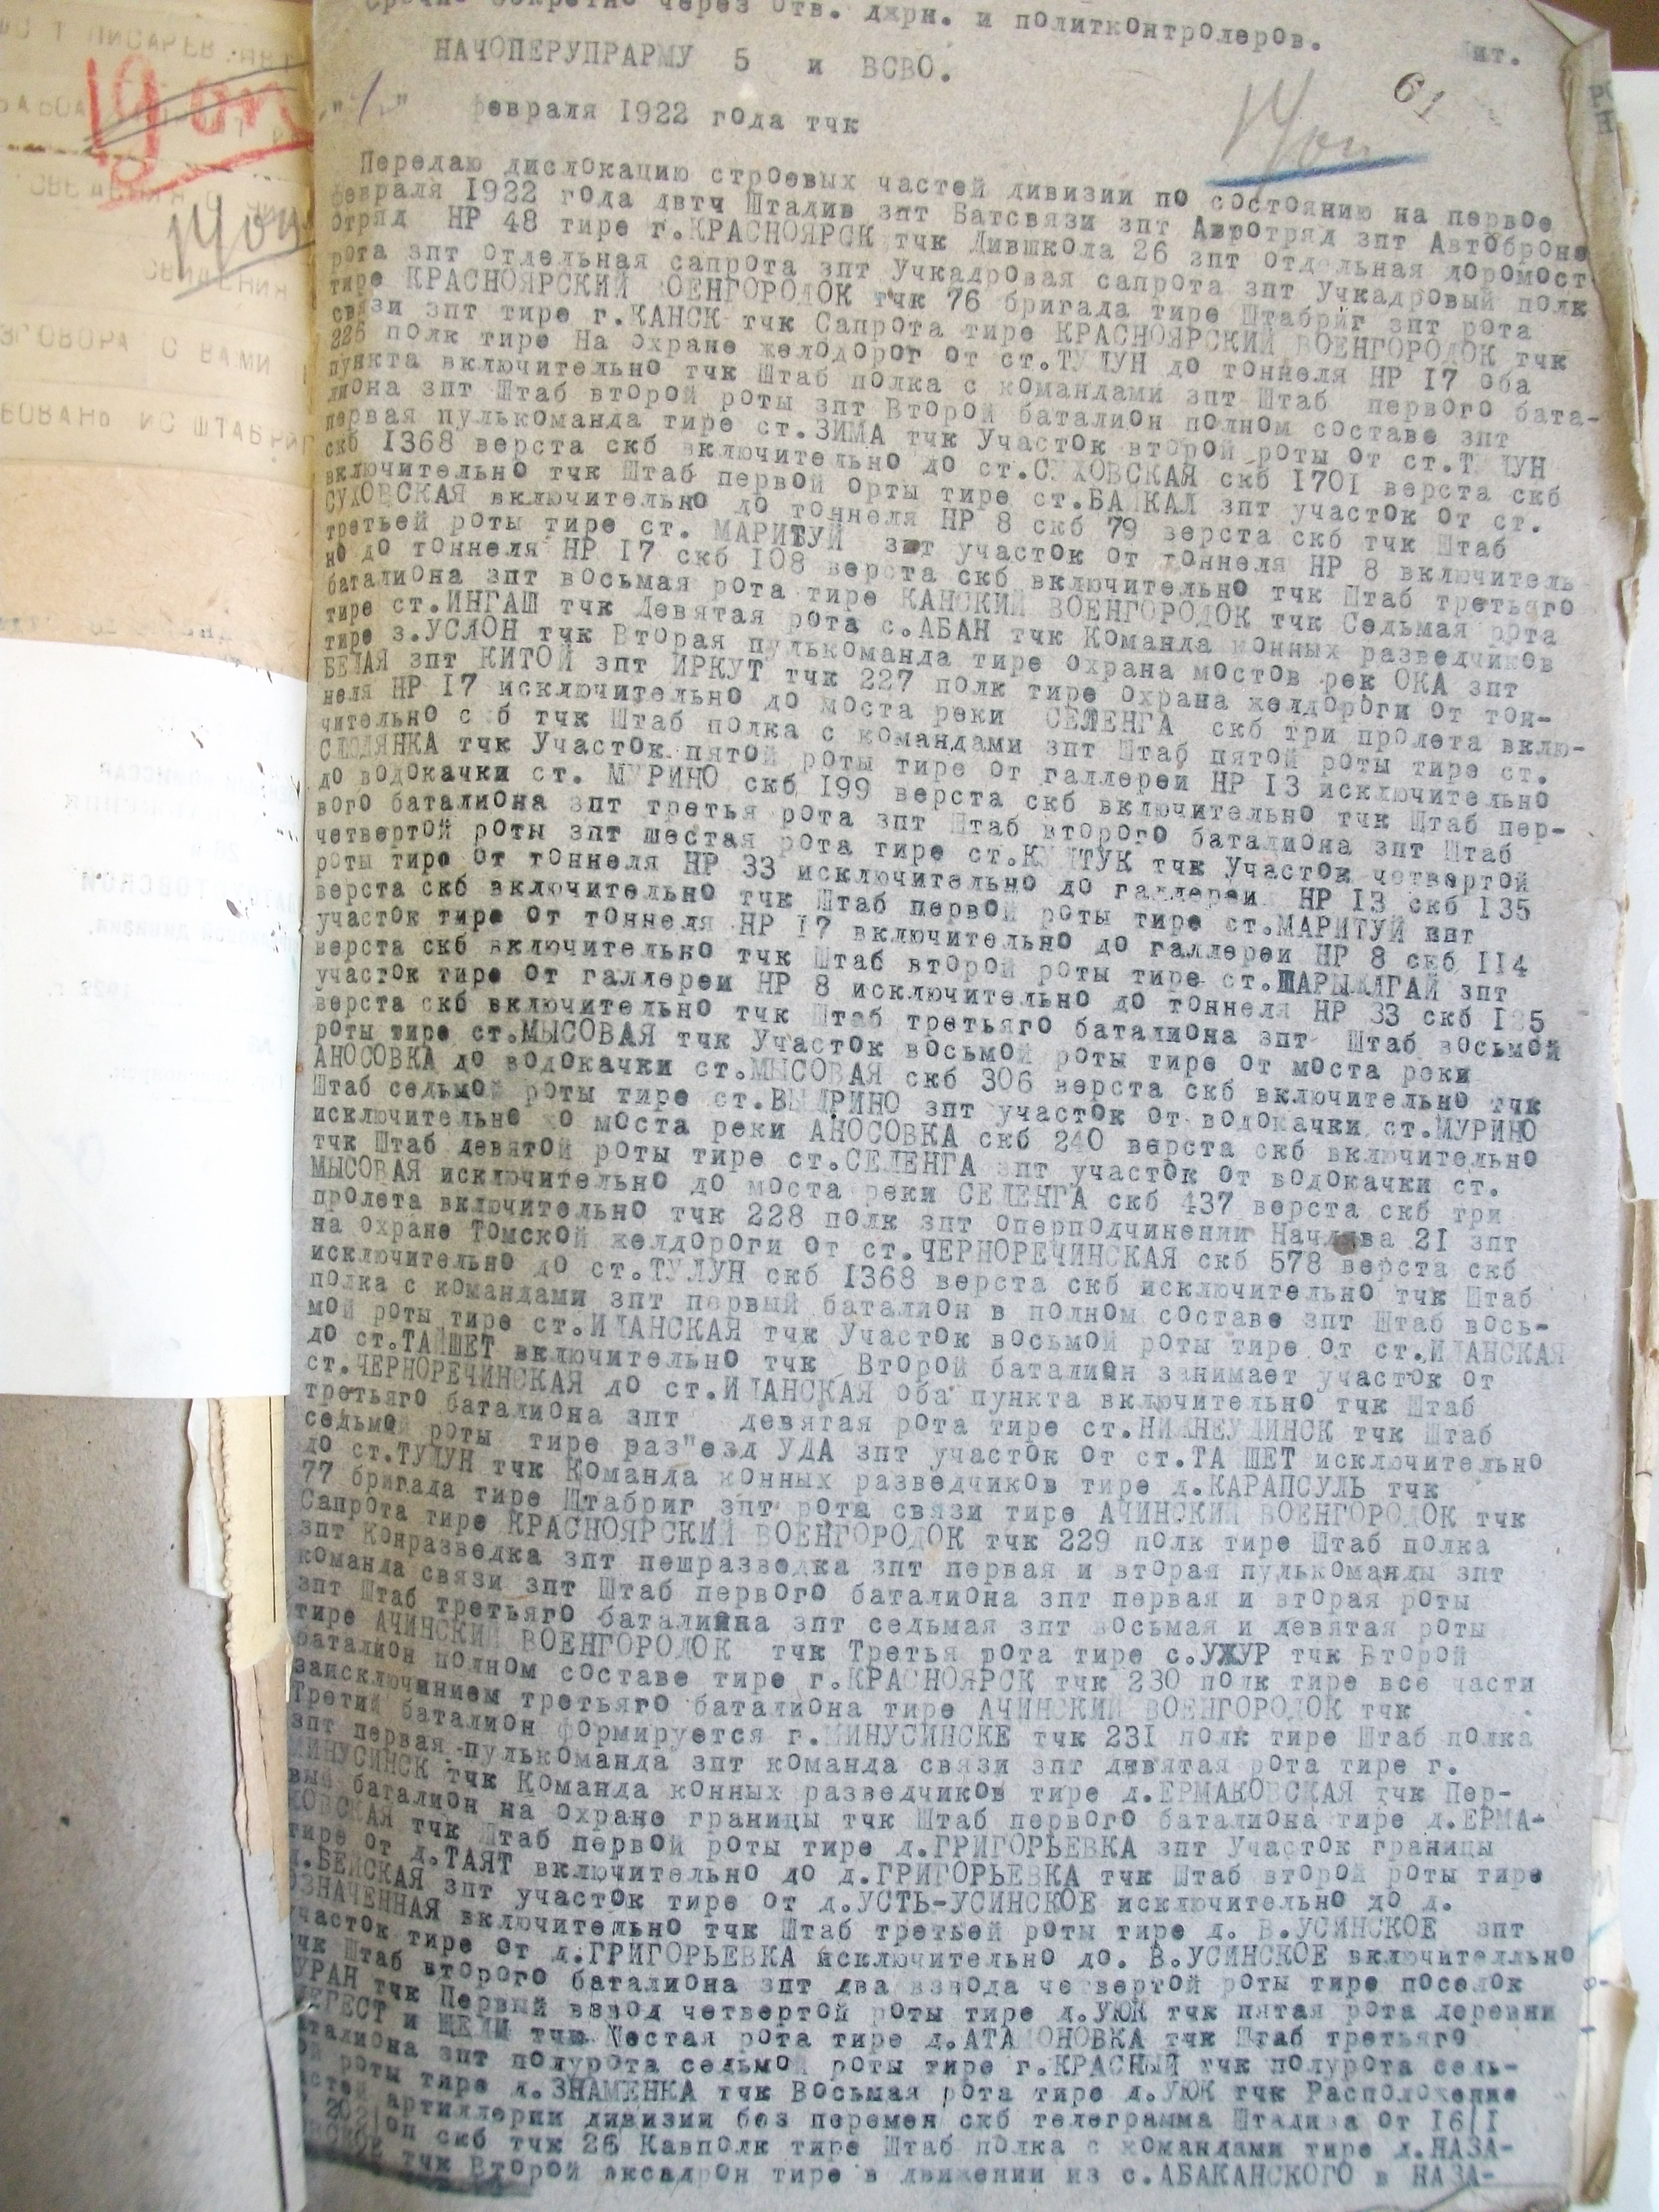 Срочно секретно через Отв. джрн. и политконтролеров.
НАЧОПЕРУПРАРМУ 5 и ВСВО.
61
февраля 1922 года тчк
Передаю дислокацию строевых частей дивизии по состоянию на первое
февраля 1922 года двтч Штадив зпт Батсвязи зпт Автотряд зпт Автоброне
отряд НР 48 тире г.КРАСНОЯРСК тчк Дившкола 26 зпт отдельная доромост
рота зпт Отдельная сапрота зпт Учкадровая сапрота зпт Учкадровый полк
тире КРАСНОЯРСКИЙ ВОЕНГОРОДОК тчк 76 бригада тире Штабриг зпт рота
связи зпт тире г.КАНСК тчк Сапрота тире КРАСНОЯРСКИЙ ВОЕНГОРОДОК тчк
226 полк тире На охране желодорог от ст.ТУЛУН до тоннеля НР 17 оба
пункта включительно тчк Штаб полка с командами зпт Штаб первого бата-
лиона зпт Штаб второй роты зпт Второй баталион полном составе зпт
первая пулькоманда тире ст.ЗИМА тчк Участок второй роты от ст.ТУЛУН
скб 1368 верста скб включительно до ст.СУХОВСКАЯ скб 1701 верста скб
включительно тчк Штаб первой орты тире ст.БАЙКАЛ зпт участок от ст.
СУХОВСКАЯ включительно до тоннеля НР 8 скб 79 верста скб тчк Штаб
третьей роты тире ст. МАРИТУЙ зпт участок от тоннеля НР 8 включитель
но до тоннеля НР 17 скб 108 верста скб включительно тчк Штаб третьяго
баталиона зпт восьмая рота тире КАНСКИЙ ВОЕНГОРОДОК тчк Седьмая рота
тире ст.ИНГАШ тчк Девятая рота с.АБАН тчк Команда конных разведчиков
тире з.УСЛОН тчк Вторая пулькоманда тире охрана мостов рек ОКА зпт
БЕЛАЯ зпт КИТОЙ зпт ИРКУТ тчк 227 полк тире охрана желдороги от тон-
неля НР 17 исключительно до моста реки СЕЛЕНГА скб три пролета вклю-
чительно скб тчк Штаб полка с командами зпт Штаб пятой роты тире ст.
СЛЮДЯНКА тчк Участок пятой роты тире от галлереи НР 13 исключительно
до водокачки ст. МУРИНО скб 199 верста скб включительно тчк Штаб пер-
вого баталиона зпт третья рота зпт Штаб второго баталиона зпт Штаб
четвертой роты зпт шестая рота тире ст.КУЛТУК тчк Участок четвертой
роты тире от тоннеля НР 33 исключительно до галлереи НР 13 скб 135
верста скб включительно тчк Штаб первой роты тире ст.МАРИТУЙ зпт
участок тире от тоннеля НР 17 включительно до галлереи НР 8 скб 114
верста скб включительно тчк Штаб второй роты тире ст.ШАРЫЖАЛГАЙ зпт
участок тире от галлереи НР 8 исключительно до тоннеля НР 33 скб
верста скб включительно тчк Штаб третьяго баталиона зпт Штаб восьмой
роты тире ст.МЫСОВАЯ тчк Участок восьмой роты тире от моста реки
АНОСОВКА до водокачки ст.МЫСОВАЯ скб 306 верста скб включительно тчк
Штаб седьмой роты тире ст.ВЫДРИНО зпт участок от водокачки ст.МУРИНО
исключительно до моста реки АНОСОВКА скб 240 верста скб включительно
тчк Штаб девятой роты тире ст.СЕЛЕНГА зпт участок от водокачки ст.
МЫСОВАЯ исключительно до моста реки СЕЛЕНГА скб 437 верста скб три
пролета включительно тчк 228 полк зпт оперподчинении Начдива 21 зпт
на охране Томской желдороги от ст.ЧЕРНОРЕЧИНСКАЯ скб 578 верста скб
исключительно до ст.ТУЛУН скб 1368 верста скб исключительно тчк Штаб
полка с командами зпт первый баталион в полном составе зпт Штаб вось-
мой роты тире ст.ИЛАНСКАЯ тчк Участок восьмой роты тире от ст.ИЛАНСКАЯ
до ст.ТАЙШЕТ включительно тчк Второй баталион занимает участок от
ст.ЧЕРНОРЕЧИНСКАЯ до ст.ИЛАНСКАЯ оба пункта включительно тчк Штаб
третьяго баталиона зпт девятая рота тире ст.НИЖНЕУДИНСК тчк Штаб
седьмой роты тире раз"езд УДА зпт участок от ст.ТАЙШЕТ исключительно
до ст.ТУЛУН тчк Команда конных разведчиков тире д.КАРАПСУЛЬ тчк
77 бригада тире Штабриг зпт рота связи тире АЧИНСКИЙ ВОЕНГОРОДОК тчк
Сапрота тире КРАСНОЯРСКИЙ ВОЕНГОРОДОК тчк 229 полк тире Штаб полка
зпт Конразведка зпт пешразведка зпт первая и вторая пулькоманды зпт
команда связи зпт Штаб первого баталиона зпт первая и вторая роты
зпт Штаб третьяго баталиона зпт седьмая зпт восьмая и девятая роты
тире АЧИНСКИЙ ВОЕНГОРОДОК тчк Третья рота тире с.УЖУР тчк Второй
баталион полном составе тире г.КРАСНОЯРСК тчк 230 полк тире все части
заисключинием третьяго баталиона тире АЧИНСКИЙ ВОЕНГОРОДОК тчк
Третий баталион формируется г.МИНУСИНСКЕ тчк 231 полк тире Штаб полка
зпт первая пулькоманда зпт команда связи зпт девятая рота тире г.
МИНУСИНСК тчк Команда конных разведчиков тире д.ЕРМАКОВСКАЯ тчк Пер-
вый баталион на охране границы тчк Штаб первого баталиона тире д.ЕРМА-
КОВСКАЯ тчк Штаб первой роты тире д.ГРИГОРЬЕВКА зпт Участок границы
тире от д.ТАЯТ включительно до д.ГРИГОРЬЕВКА тчк Штаб второй роты тире
д.БЕЙСКАЯ зпт участок тире от д.УСТЬ-УСИНСКОЕ исключительно до д.
ОЗНАЧЕННАЯ включительно тчк Штаб третьей роты тире д. В.УСИНСКОЕ зпт
участок тире от д.ГРИГОРЬЕВКА исключительно до. В.УСИНСКОЕ включителльно
тчк Штаб второго баталиона зпт два взвода четвертой роты тире поселок
ТУРАН тчк Первый взвод четвертой роты тире д.УЮК тчк пятая рота деревни
и тчк Шестая рота тире д.АТАМОНОВКА тчк Штаб третьяго
баталиона зпт полурота седьмой роты тире г.КРАСНЫЙ тчк полурота седь-
мой роты тире д.ЗНАМЕНКА тчк Восьмая рота тире д.УЮК тчк Расположение
частей артиллерии дивизии без перемен скб телеграмма Штадива от 16/1
оп скб тчк 26 Кавполк тире Штаб полка с командами тире д.НАЗА-
тчк Второй эксадрон тире в движении из с.АБАКАНСКОГО в НАЗА-